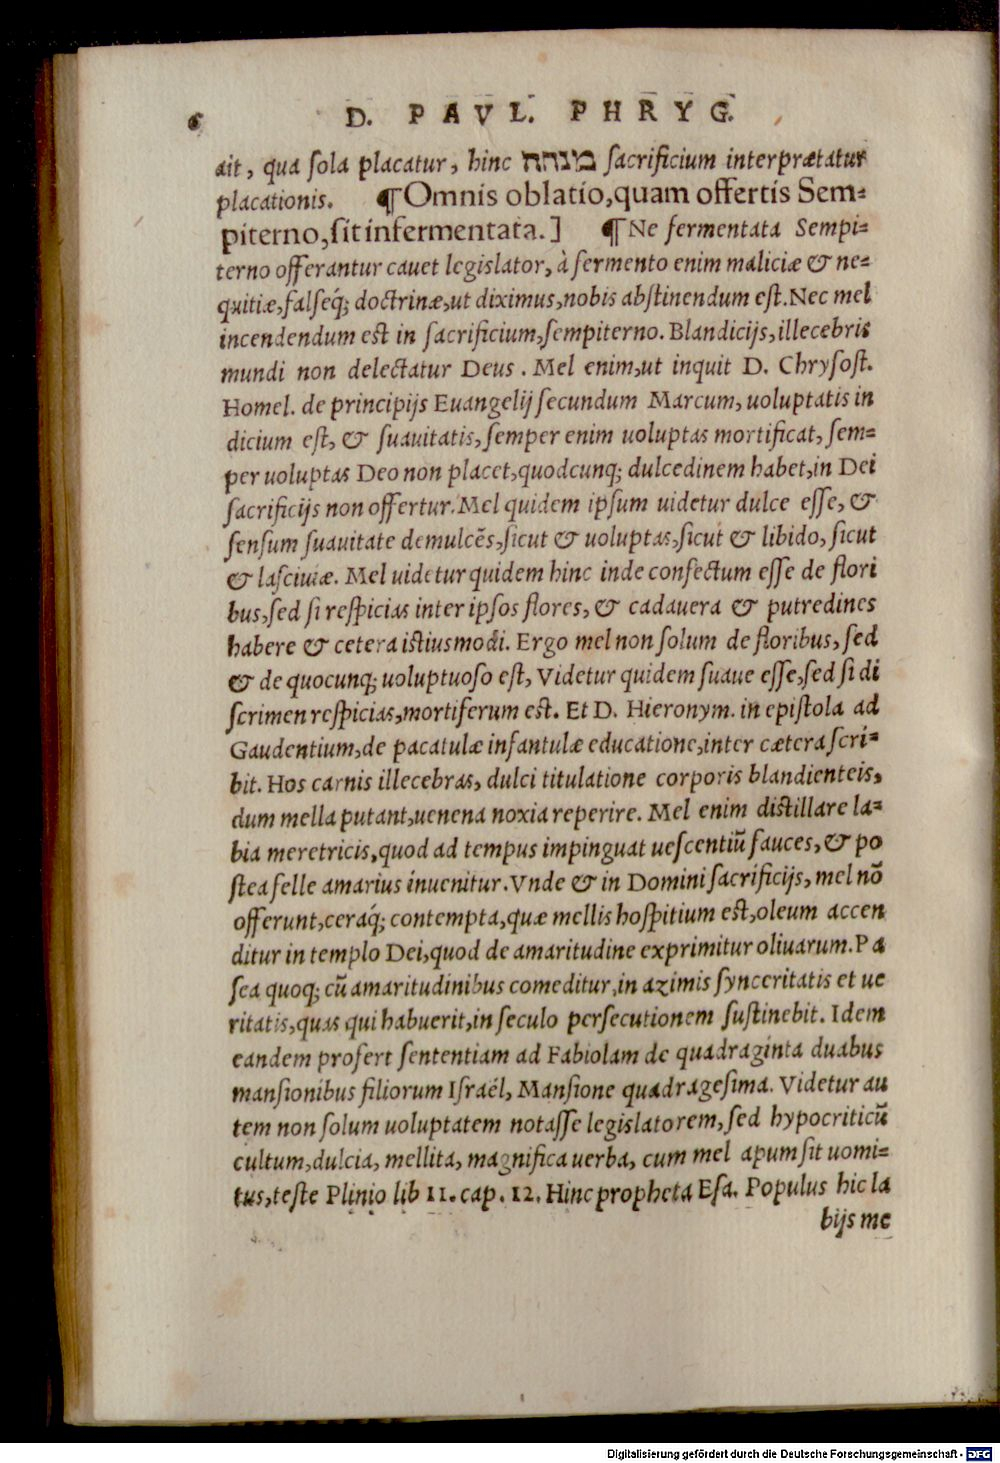 6 D. PAVL. PHRYG.
ait, qua sola placatur, hinc מנחה sacrificium interprætatur
placationis. ¶Omnis oblatio,quam offertis Sem-
piterno,sit infermentata.] ¶Ne fermentata Sempi-
terno offerantur cauet legislator, à fermento enim maliciæ & ne-
quitiæ,falseq́; doctrinæ,ut diximus,nobis abstinendum est.Nec mel
incendendum est in sacrificium,sempiterno. Blandicijs,illecebris
mundi non delectatur Deus. Mel enim,ut inquit D. Chrysost.
Homel. de principijs Euangelij secundum Marcum, uoluptatis in
dicium est, & suauitatis, semper enim uoluptas mortificat, sem-
per uoluptas Deo non placet,quodcunq; dulcedinem habet,in Dei
sacrificijs non offertur.Mel quidem ipsum uidetur dulce esse, &
sensum suauitate demulcẽs,sicut & uoluptas,sicut & libido, sicut
& lasciuiæ. Mel uidetur quidem hinc inde confectum esse de flori
bus,sed si respicias inter ipsos flores, & cadauera & putredines
habere & cetera istiusmodi. Ergo mel non solum de floribus, sed
& de quocunq; uoluptuoso est, Videtur quidem suaue esse,sed si di
scrimen respicias,mortiferum est. Et D. Hieronym. in epistola ad
Gaudentium,de pacatulæ infantulæ educatione,inter cætera scri-
bit. Hos carnis illecebras, dulci titulatione corporis blandienteis,
dum mella putant,uenena noxia reperire. Mel enim distillare la-
bia meretricis,quod ad tempus impinguat uescentiũ fauces, & po
stea felle amarius inuenitur.Vnde & in Domini sacrificijs, mel nõ
offerunt,ceraq́; contempta,quæ mellis hospitium est,oleum accen
ditur in templo Dei,quod de amaritudine exprimitur oliuarum.Pa
sea quoq; cũ amaritudinibus comeditur,in azimis synceritatis et ue
ritatis,quas qui habuerit,in seculo persecutionem sustinebit. Idem
eandem profert sententiam ad Fabiolam de quadraginta duabus
mansionibus filiorum Israël, Mansione quadragesima. Videtur au
tem non solum uoluptatem notasse legislatorem, sed hypocriticũ
cultum,dulcia, mellita, magnifica uerba, cum mel apum sit uomi-
tus,teste Plinio lib 11. cap. 12. Hinc propheta Esa. Populus hic la
bijs me
Digitalisierung gefördert durch die Deutsche Forschungsgemeinschaft - DFG